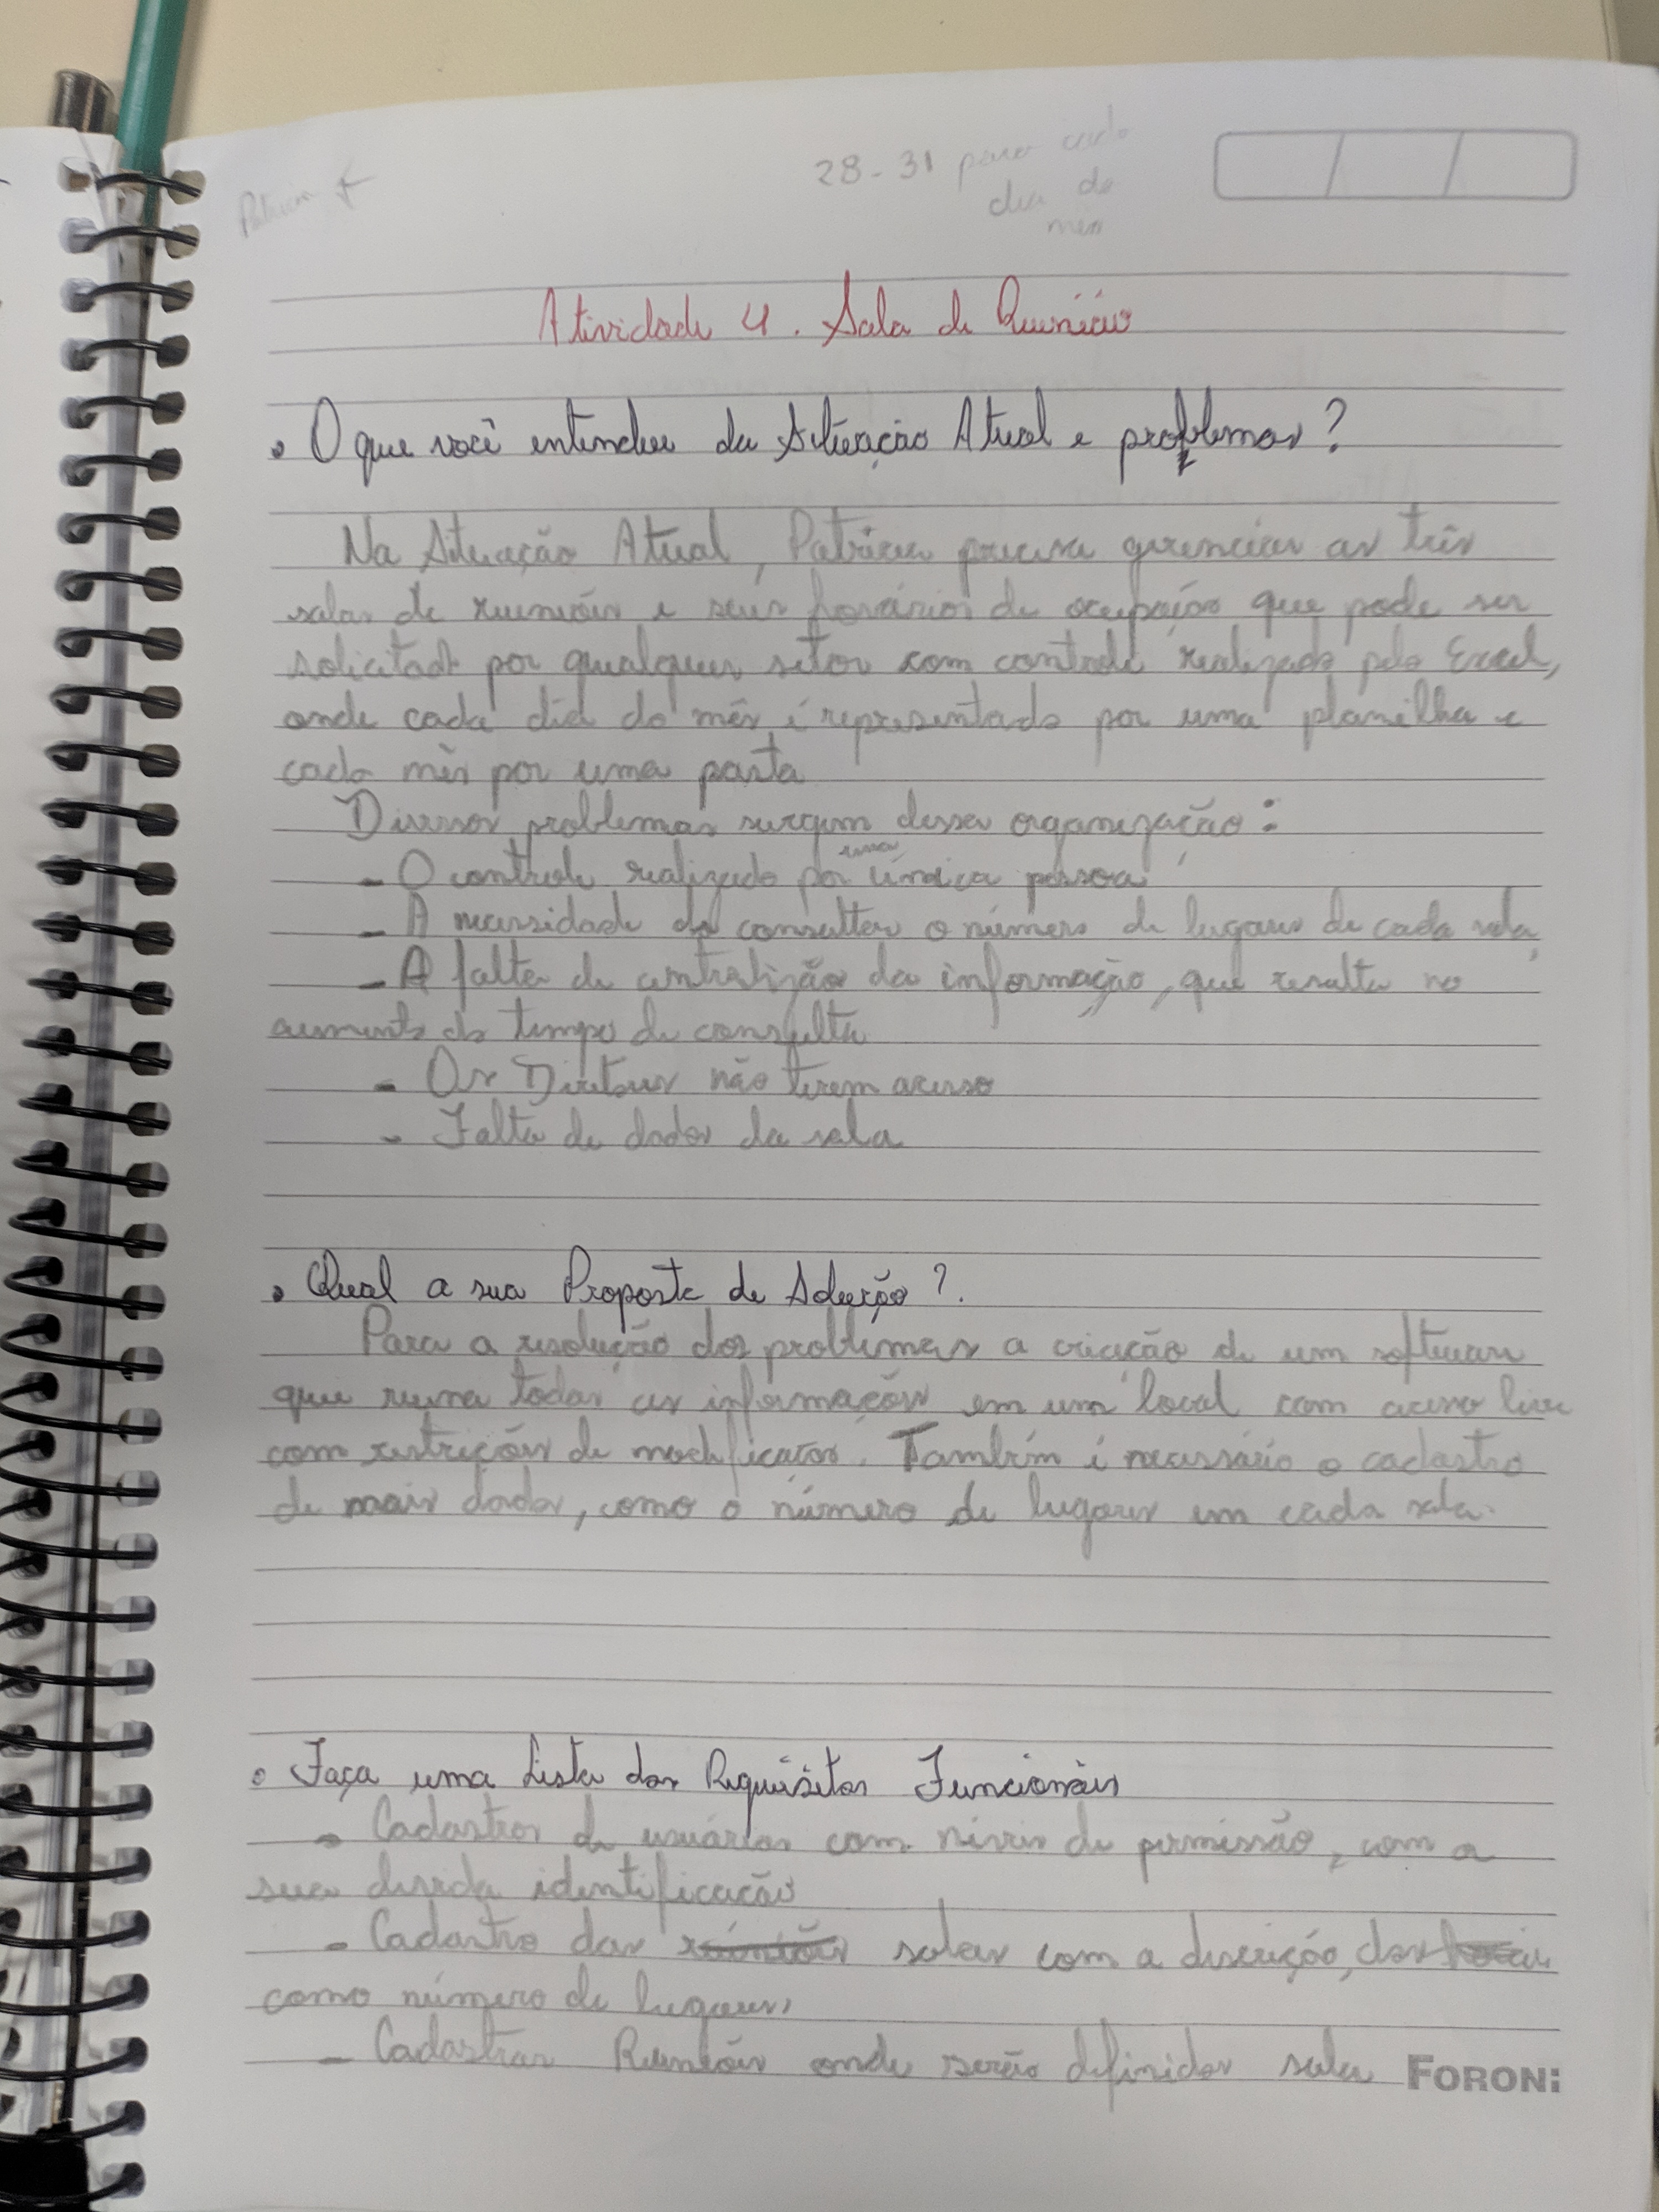 28-31 para cada
dia do
mês
Patricia
Atividade 4. Sala de Reunião
• O que você entendeu da Situação Atual e problemas?
Na Situação Atual, Patricia precisa gerenciar as três
salas de reuniões e seus horários de ocupação que pode ser
solicitado por qualquer setor com controle realizado pelo Excel,
onde cada dia do mês é representado por uma planilha e
cada mês por uma pasta
Diversos problemas surgem dessa organização:
- O controle realizado por uma única pessoa
- A necessidade de consultar o número de lugares de cada sala,
- A falta de centralizão da informação, que resulta no
aumento do tempo de consulta
- Os Diretores não terem acesso
- Falta de dados da sala
• Qual a sua Proposta de Solução?.
Para a resolução dos problemas a criação de um software
que reuna todas as informações em um local com acesso livre
com restrições de modificação. Também é necessário o cadastro
de mais dados, como o número de lugares em cada sala.
• Faça uma Lista dos Requisitos Funcionais
- Cadastros de usuários com níveis de permissão, com a
sua devida identificação
- Cadastro das salas com a descrição, das
como número de lugares,
- Cadastrar Reuniões onde serão definidos sala
FORONI